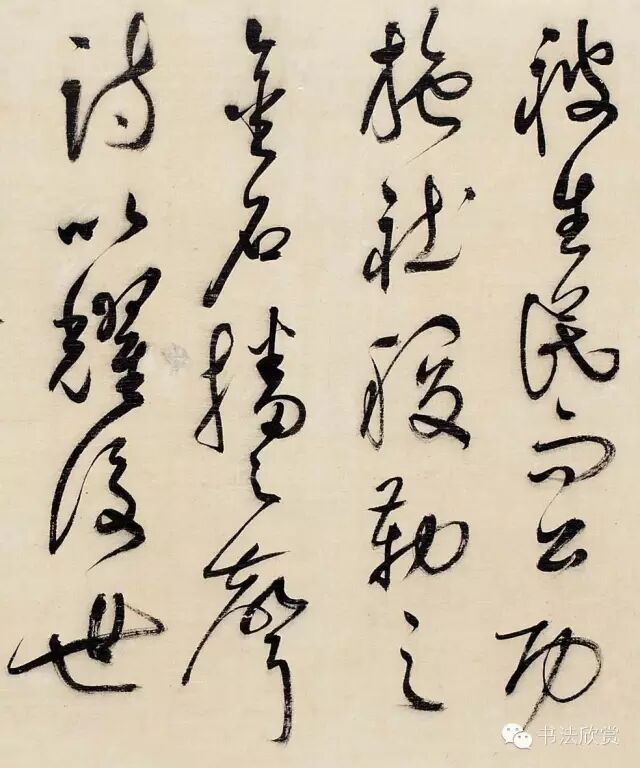 被生民而公功
施社稷勒之
金石播之聲
詩以耀後世
书法欣赏